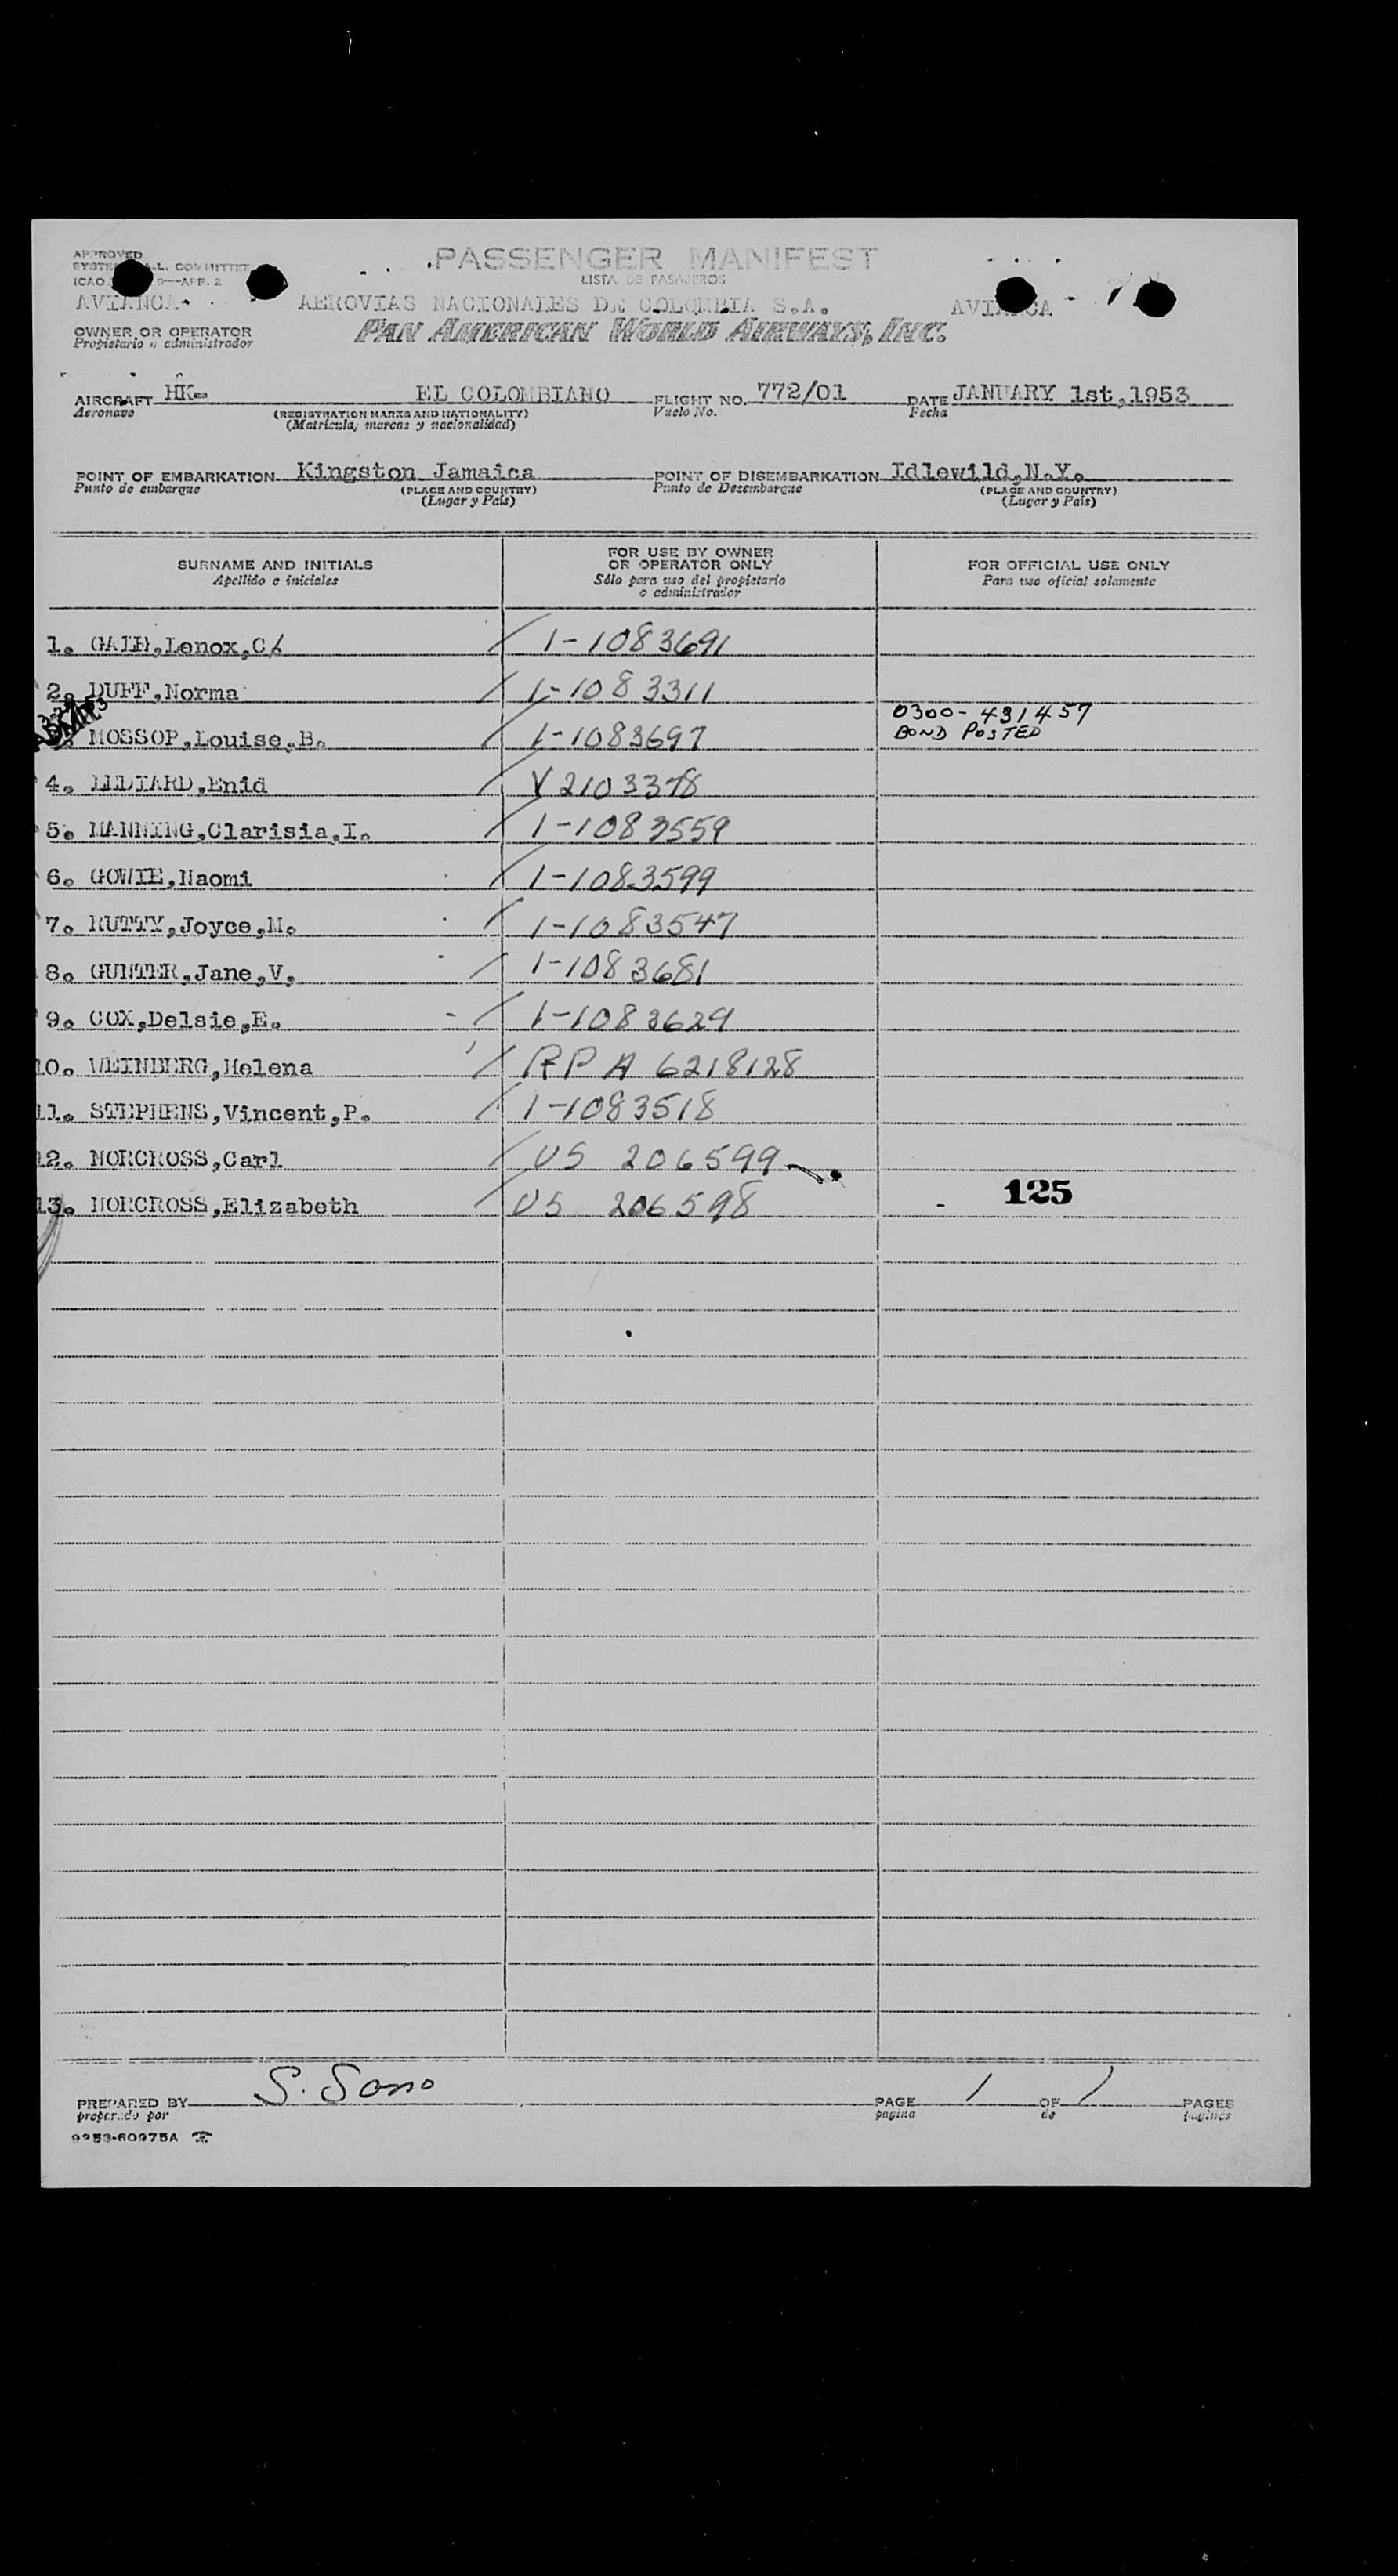 APPROVED
COMMITTEE
ICAO
PASSENGER MANIFEST
LISTA DE PASAJEROS
AVIANCA AEROVIAS NACIONALES DE COLOMBIA S.A. AVIANCA
OWNER OR OPERATOR
Propietario o administrador
PAN AMERICAN WORLD AIRWAYS, INC.
AIRCRAFT HK- EL COLOMBIANO FLIGHT NO. 772/01 DATE JANUARY 1st,1953
Aeronave (REGISTRATION MARKS AND NATIONALITY) Vuelo No. Fecha
(Matrícula, marcas y nacionalidad)
POINT OF EMBARKATION Kingston Jamaica POINT OF DISEMBARKATION Idlewild,N.Y.
Punto de embarque (PLACE AND COUNTRY) Punto de Desembarque (PLACE AND COUNTRY)
(Lugar y País) (Lugar y País)
SURNAME AND INITIALS
Apellido e iniciales
FOR USE BY OWNER
OR OPERATOR ONLY
Sólo para uso del propietario
o administrador
FOR OFFICIAL USE ONLY
Para uso oficial solamente
1. Lenox,C/ 1-1083691
2. DUFF,Norma 1-1083311
0300-431457
MOSSOP,Louise,B. 1-1083697 BOND POSTED
4. Enid V2103378
5. MANNING,Clarisia,I. 1-1083559
6. GOWIE,Naomi 1-1083599
7. RUTTY,Joyce,M. 1-1083547
8. GUNTER,Jane,V, 1-1083681
9. COX,Delsie,E. 1-1083629
10. WEINBERG,Helena RPA 6218128
11. STEPHENS,Vincent,P. 1-1083518
12. NORCROSS,Carl US 206599
13. NORCROSS,Elizabeth US 206598
125
PREPARED BY S. Sano PAGE 1 OF 1 PAGES
preparado por pagina de paginas
9253-60975A